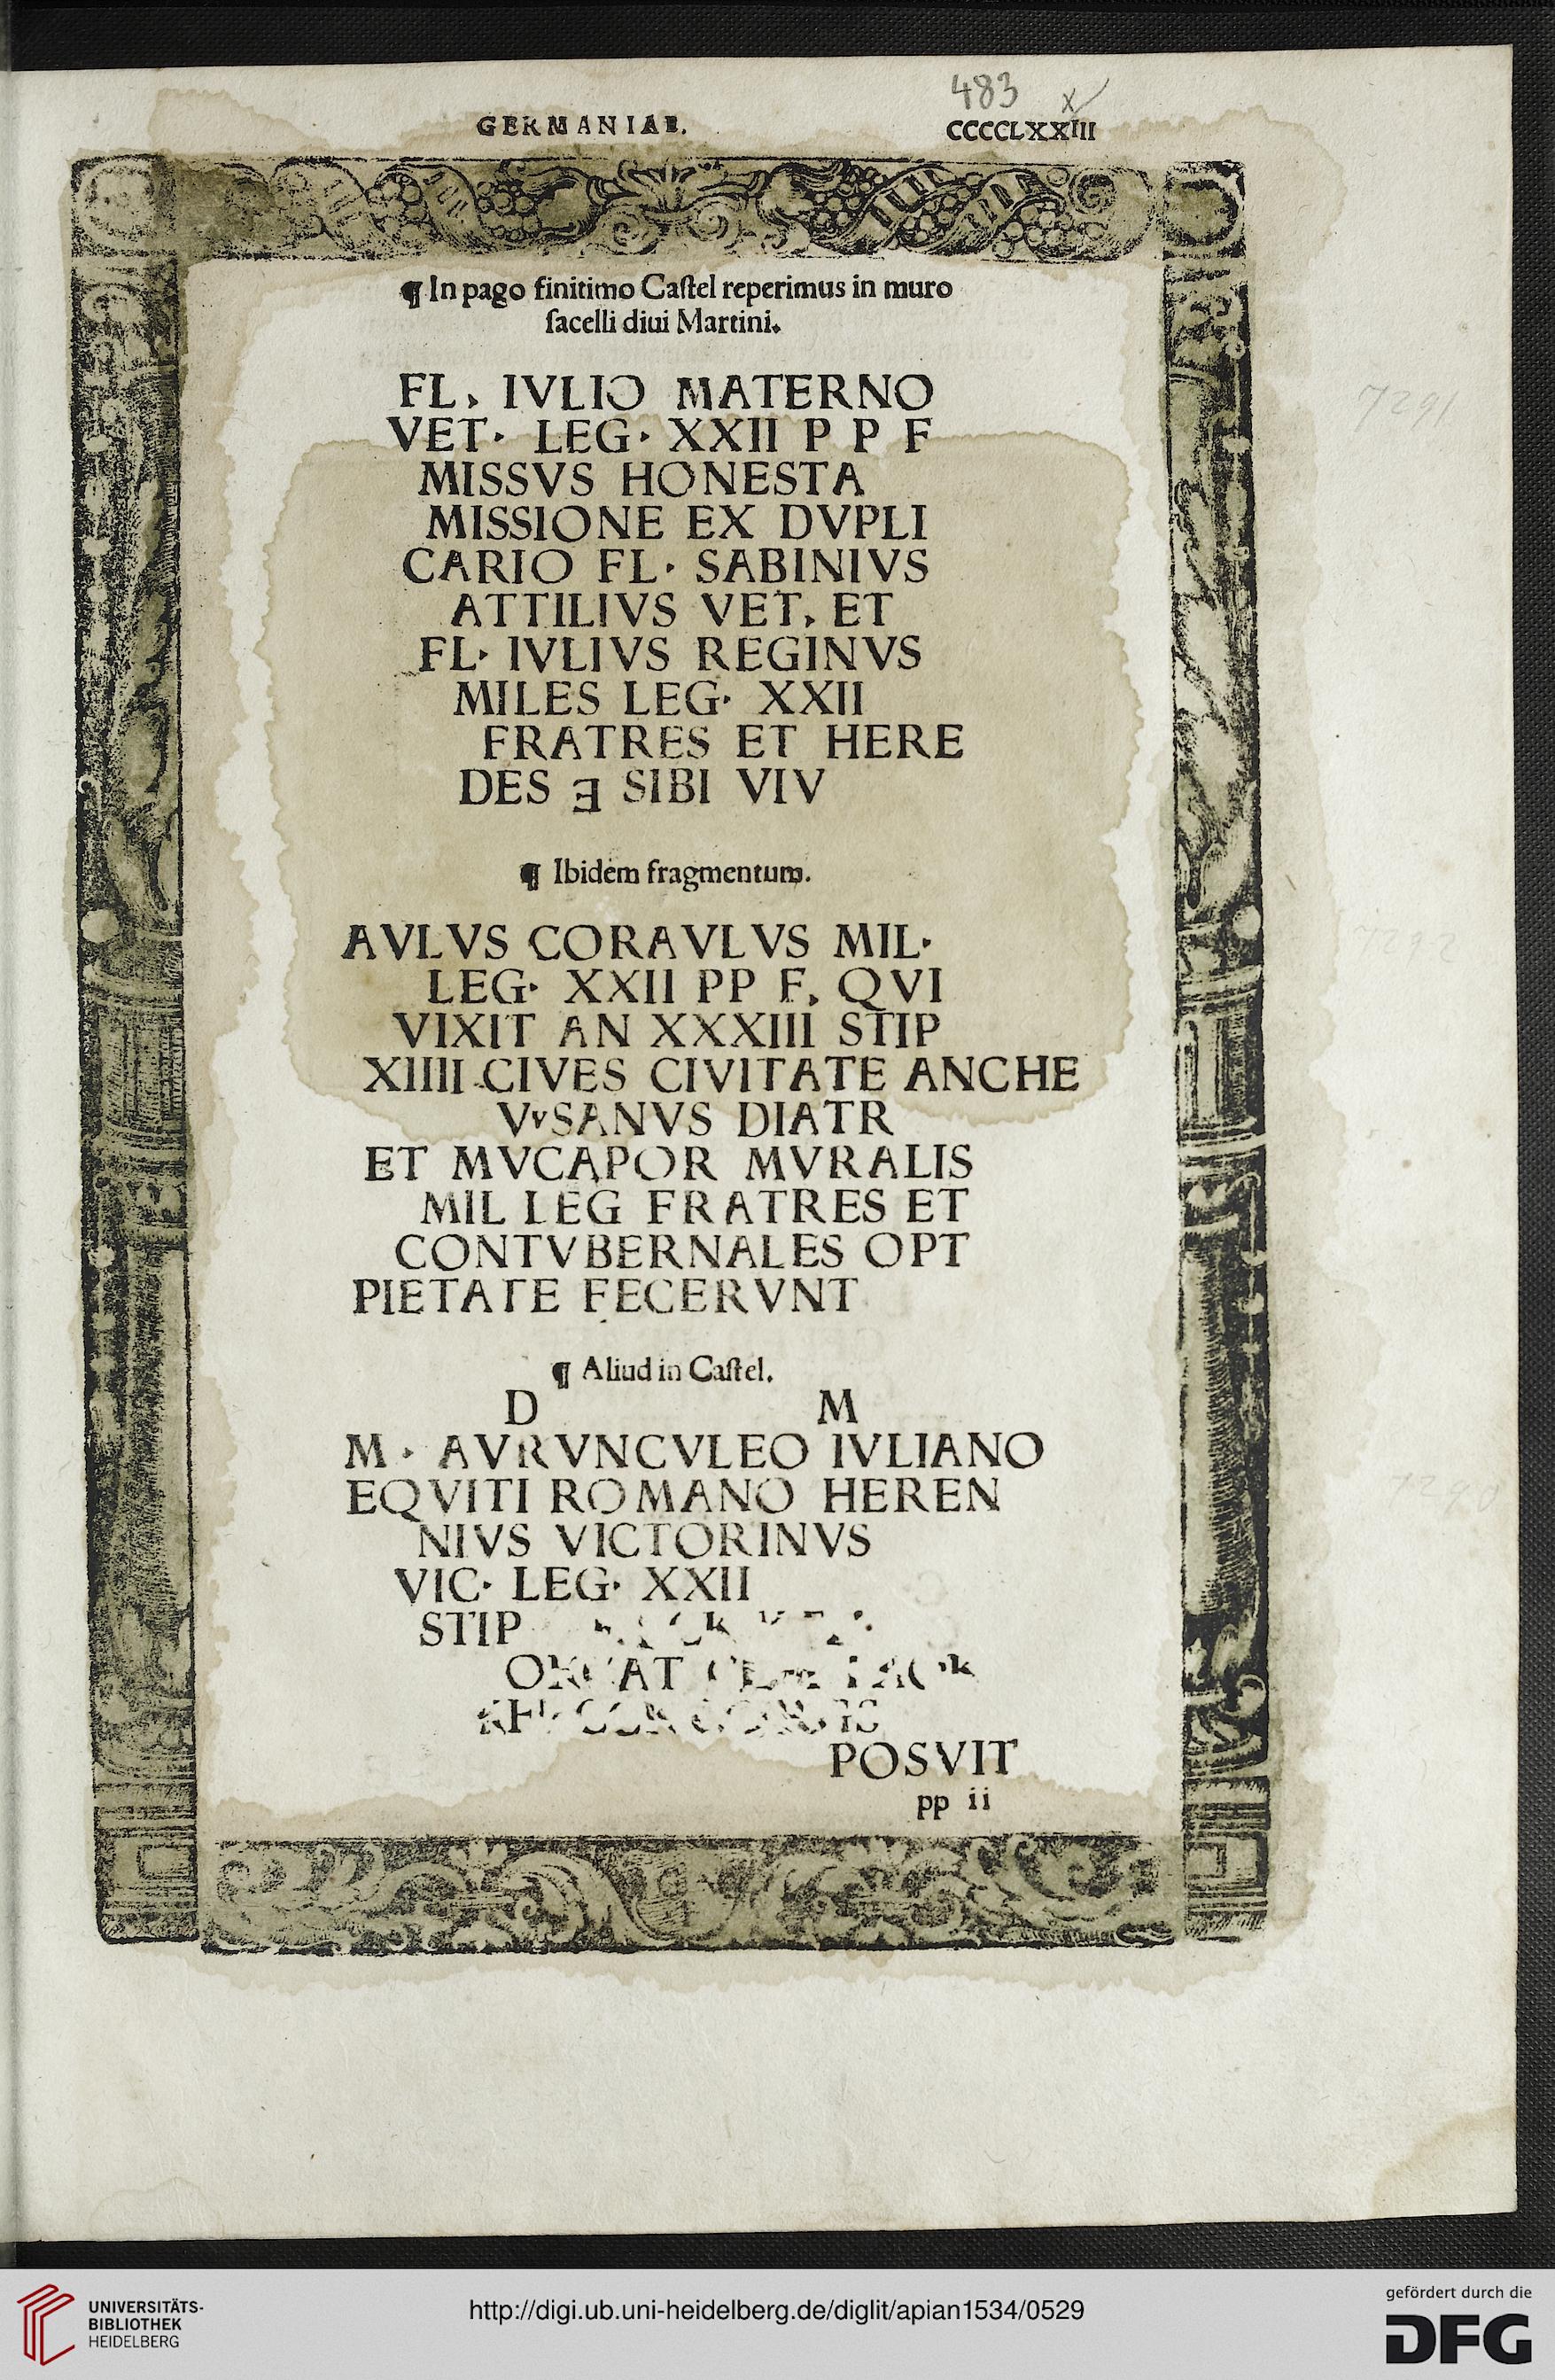 483
GERMANIAE. CCCCLXXIII
¶ In pago finitimo Caſtel reperimus in muro
ſacelli diui Martini.
FL. IVLIO MATERNO
VET· LEG· XXII P P F
MISSVS HONESTA
MISSIONE EX DVPLI
CARIO FL· SABINIVS
ATTILIVS VET, ET
FL· IVLIVS REGINVS
MILES LEG· XXII
FRATRES ET HERE
DES Ǝ SIBI VIV
¶ Ibidem fragmentum.
AVLVS CORAVLVS MIL·
LEG· XXII PP F. QVI
VIXIT AN XXXIII STIP
XIIII CIVES CIVITATE ANCHE
VvSANVS DIATR
ET MVCAPOR MVRALIS
MIL LEG FRATRES ET
CONTVBERNALES OPT
PIETATE FECERVNT
¶ Aliud in Caſtel.
D M
M· AVRVNCVLEO IVLIANO
EQVITI ROMANO HEREN
NIVS VICTORINVS
VIC· LEG· XXII
STIP
POSVIT
pp ii
7291
7292
7290
UNIVERSITÄTS-
BIBLIOTHEK
HEIDELBERG
http://digi.ub.uni-heidelberg.de/diglit/apian1534/0529
gefördert durch die
DFG